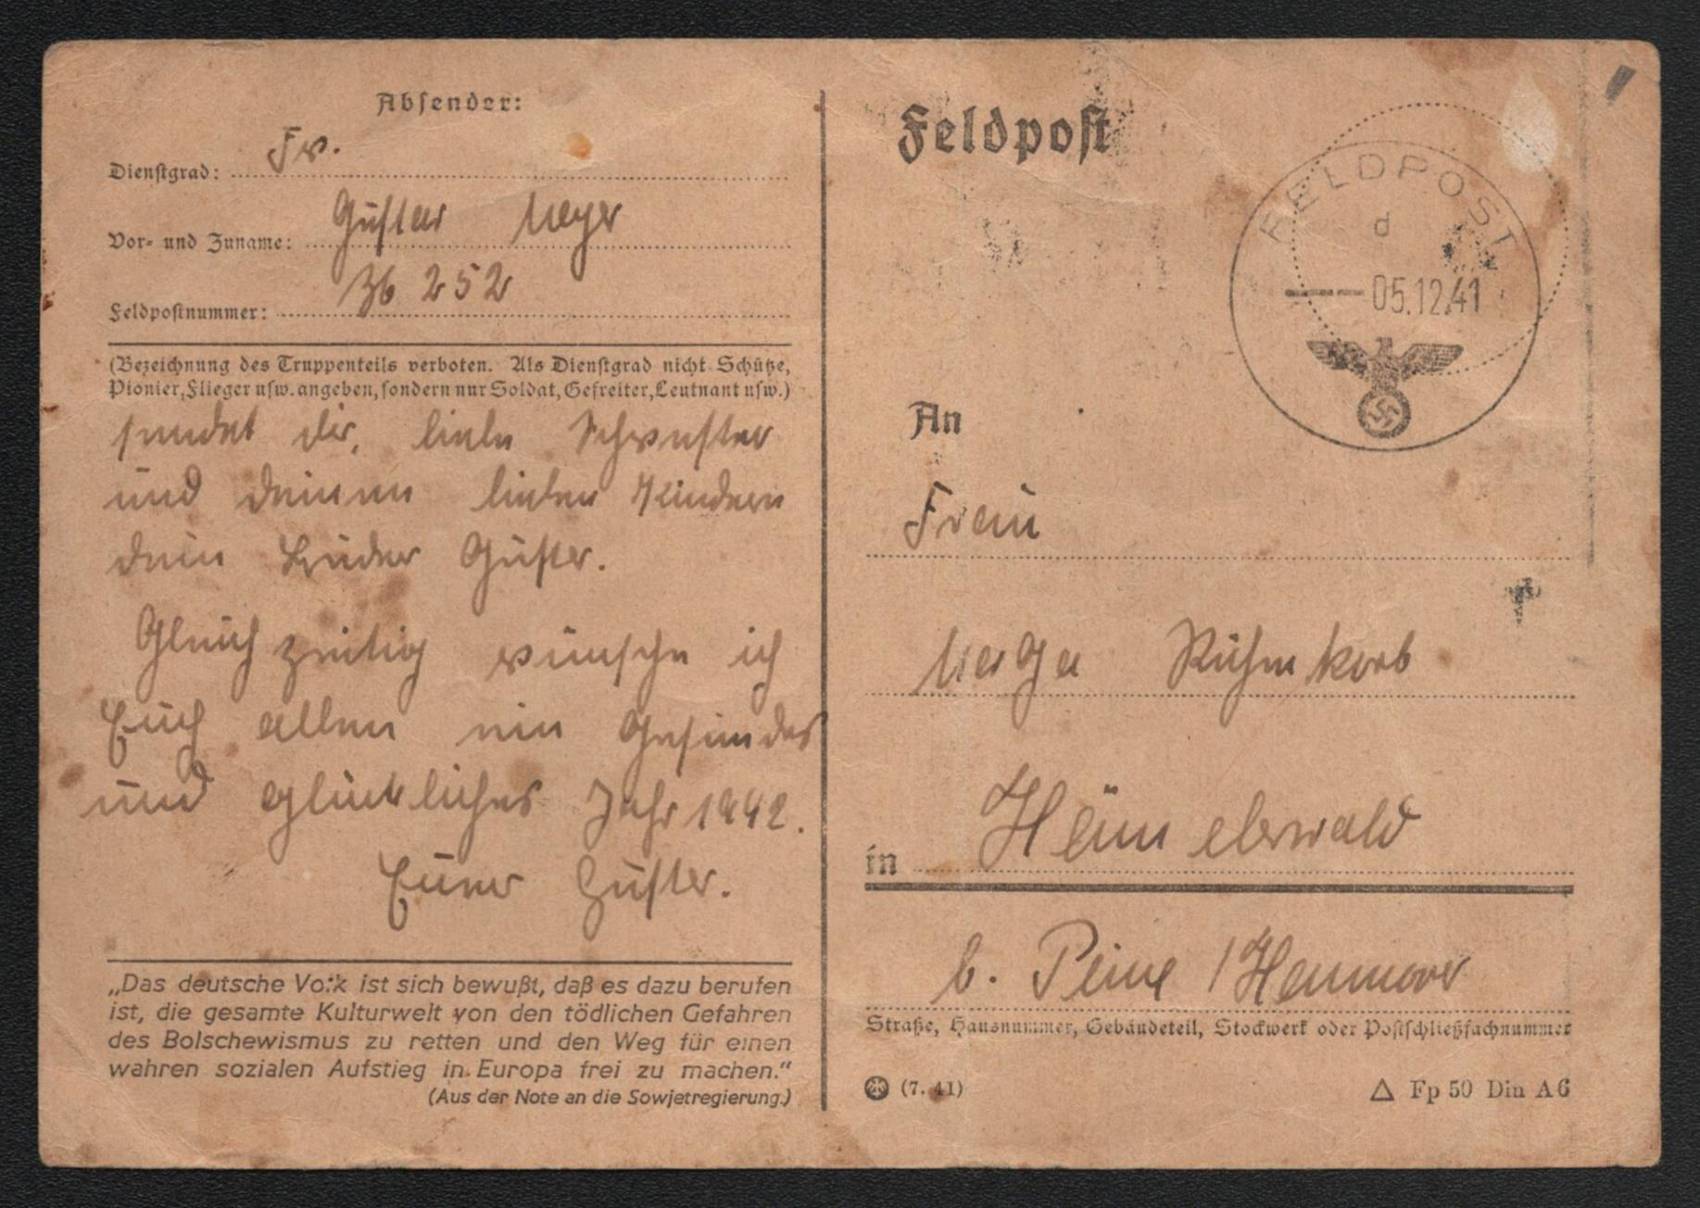 Absender:
Dienstgrad: Fr.
Vor- und Zuname: Gustav Meyer
Feldpostnummer: 36 252
(Bezeichnung des Truppenteils verboten. Als Dienstgrad nicht Schütze,
Pionier, Flieger usw. angeben, sondern nur Soldat, Gefreiter, Leutnant usw.)
sendet dir, liebe Schwester
und deinen lieben Kindern
dein Bruder Guster.
Gleich zeitig wünsche ich
Euch allen ein Gesundes
und glückliches Jahr 1942.
Euer Guster.
„Das deutsche Volk ist sich bewußt, daß es dazu berufen
ist, die gesamte Kulturwelt von den tödlichen Gefahren
des Bolschewismus zu retten und den Weg für einen
wahren sozialen Aufstieg in Europa frei zu machen.“
(Aus der Note an die Sowjetregierung.)
Feldpost
FELDPOST
d
05.12.41
An
Frau
Rühmkorb
in Hämelerwald
b. Peine / Hannover
Straße, Hausnummer, Gebäudeteil, Stockwerk oder Postschließfachnummer
(7. 41)
Fp 50 Din A 6